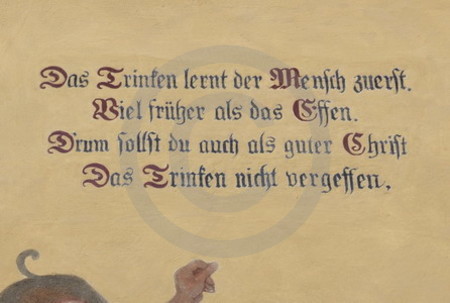 Das Trinken lernt der Mensch zuerst.
Viel früher als das Essen.
D'rum sollst du auch als guter Christ
Das Trinken nicht vergessen.